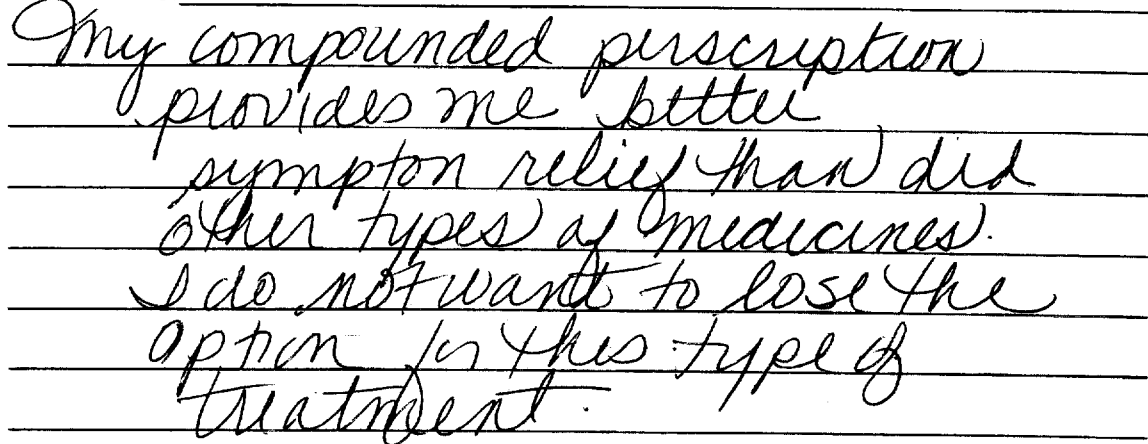 My compounded perscription
provides me better
sympton relief than did
other types of medicines.
I do not want to lose the
option for this type of
treatment.